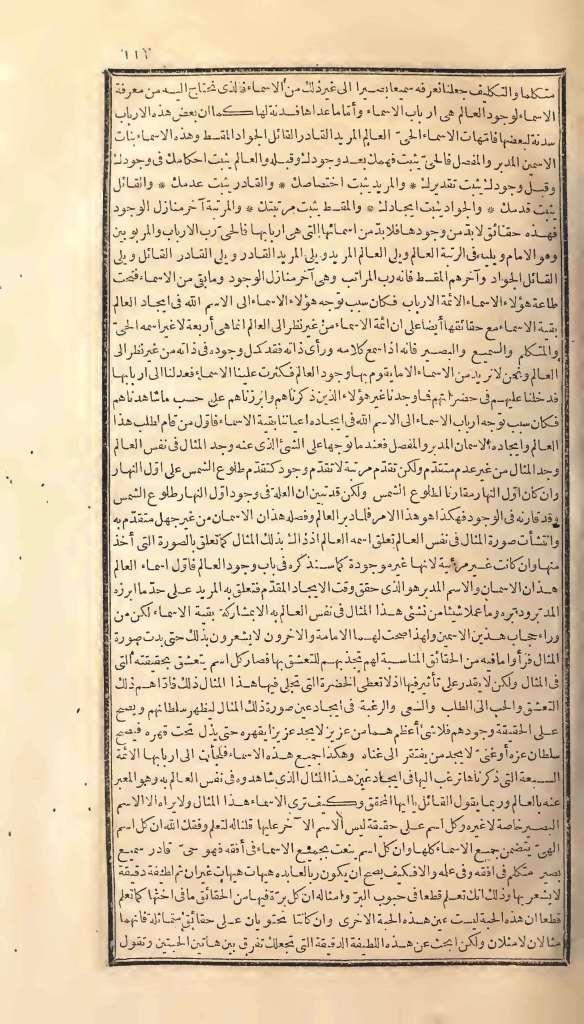 ١١٢
متكلما والتكليف جعلنا نعرفه سميعا بصيرا الى غير ذلك من الاسماء فالذى نحتاج اليه من معرفة
الاسماء لوجود العالم هى ارباب الاسماء وأما ما عداها فسدنة لها كما ان بعض هذه الارباب
سدنة لبعضها فامهات الاسماء الحىّ العالم المريد القادر القائل الجواد المقسط وهذه الاسماء بنات
الاسمين المدبر والمفصل فالحىّ يثبت فهمك بعد وجودك وقبله والعالم يثبت احكامك فى وجودك
وقبل وجودك يثبت تقديرك * والمريد يثبت اختصاصك * والقادر يثبت عدمك * والقائل
يثبت قدمك * والجواد يثبت ايجادك * والمقسط يثبت مرتبتك * والمرتبة آخر منازل الوجود
فهذه حقائق لابد من وجودها فلابد من اسمائها التى هى اربابها فالحىّ رب الارباب والمربوبين
وهو الامام ويليه فى الرتبة العالم ويلى العالم المريد ويلى المريد القادر ويلى القادر القائل ويلى
القائل الجواد وآخرهم المقسط فانه رب المراتب وهى آخر منازل الوجود وما بقى من الاسماء فتحت
طاعة هؤلاء الاسماء الائمة الارباب فكان سبب توجه هؤلاء الاسماء الى الاسم الله فى ايجاد العالم
بقية الاسماء مع حقائقها أيضا على ان ائمة الاسماء من غير نظر الى العالم انما هى أربعة لا غير اسمه الحىّ
والمتكلم والسميع والبصير فانه اذا سمع كلامه ورأى ذاته فقد كمل وجوده فى ذاته من غير نظر الى
العالم ونحن لا نريد من الاسماء الا ما يقوم بها وجود العالم فكثرت علينا الاسماء فعدلنا الى اربابها
فدخلنا عليهم فى حضراتهم فما وجدنا غير هؤلاء الذين ذكرناهم وابرزناهم على حسب ما شاهدناهم
فكان سبب توجه ارباب الاسماء الى الاسم الله فى ايجاد اعياننا بقية الاسماء فاول من قام لطلب هذا
العالم وايجاده الاسمان المدبر والمفصل فعندما توجها على الشئ الذى عنه وجد المثال فى نفس العالم
وجد المثال من غير عدم متقدّم ولكن تقدّم مرتبة لا تقدّم وجود كتقدّم طلوع الشمس على اوّل النهار
وان كان اوّل النهار مقارنا لطلوع الشمس ولكن قد تبين ان العلة فى وجود اوّل النهار طلوع الشمس
وقد قارنه فى الوجود فهكذا هو هذا الامر فلما دبر العالم وفصله هذان الاسمان من غير جهل متقدّم به
وانتشأت صورة المثال فى نفس العالم تعلق اسمه العالم اذ ذاك بذلك المثال كما تعلق بالصورة التى أخذ
منها وان كانت غير مرئية لانها غير موجودة كما سنذكره فى باب وجود العالم فاوّل اسماء العالم
هذان الاسمان والاسم المدبر هو الذى حقق وقت الايجاد المقدّم فتعلق به المريد على حدّ ما ابرزه
المدبر ودبره وما عملا شيئا من نشئ هذا المثال فى نفس العالم به الا بمشاركة بقية الاسماء لكن من
وراء حجاب هذين الاسمين ولهذا صحت لهما الامامة والآخرون لا يشعرون بذلك حتى بدت صورة
المثال فرأوا ما فيه من الحقائق المناسبة لهم تجذبهم للتعشق بها فصار كل اسم يتعشق بحقيقته التى
فى المثال ولكن لا يقدر على تأثير فيها اذ لا تعطى الحضرة التى تجلى فيها هذا المثال ذلك فادّاهم ذلك
التعشق والحب الى الطلب والسعى والرغبة فى ايجاد عين صورة ذلك المثال ليظهر سلطانهم ويصح
على الحقيقة وجودهم فلا شئ أعظم هما من عزيز لا يجد عزيزا يقهره حتى يذل تحت قهره فيصح
سلطان عزه أو غنىّ لا يجد من يفتقر الى غناه وهكذا جميع هذه الاسماء فلجأت الى اربابها الائمة
السبعة التى ذكرناها ترغب اليها فى ايجاد عين هذا المثال الذى شاهدوه فى نفس العالم به وهو المعبر
عنه بالعالم وربما يقول القائل يا ايها المحقق وكيف ترى الاسماء هذا المثال ولا يراه الا الاسم
البصير خاصة لا غيره وكل اسم على حقيقة ليس الاسم الآخر عليها قلنا له لتعلم وفقك الله ان كل اسم
الهىّ يتضمن جميع الاسماء كلها وان كل اسم ينعت بجميع الاسماء فى أفقه فهو حىّ قادر سميع
بصير متكلم فى افقه وفى علمه والا فكيف يصح ان يكون ربا لعابده هيهات هيهات غير ان ثم لطيفة دقيقة
لا يشعر بها وذلك انك تعلم قطعا فى حبوب البرّ وامثاله ان كل برّة فيها من الحقائق ما فى اختها كما تعلم
قطعا ان هذه الحبة ليست عين هذه الحبة الاخرى وان كانتا تحتويان على حقائق متماثلة فانهما
مثالان لا مثلان ولكن ابحث عن هذه اللطيفة الدقيقة التى تجعلك تفرق بين هاتين الحبتين وتقول